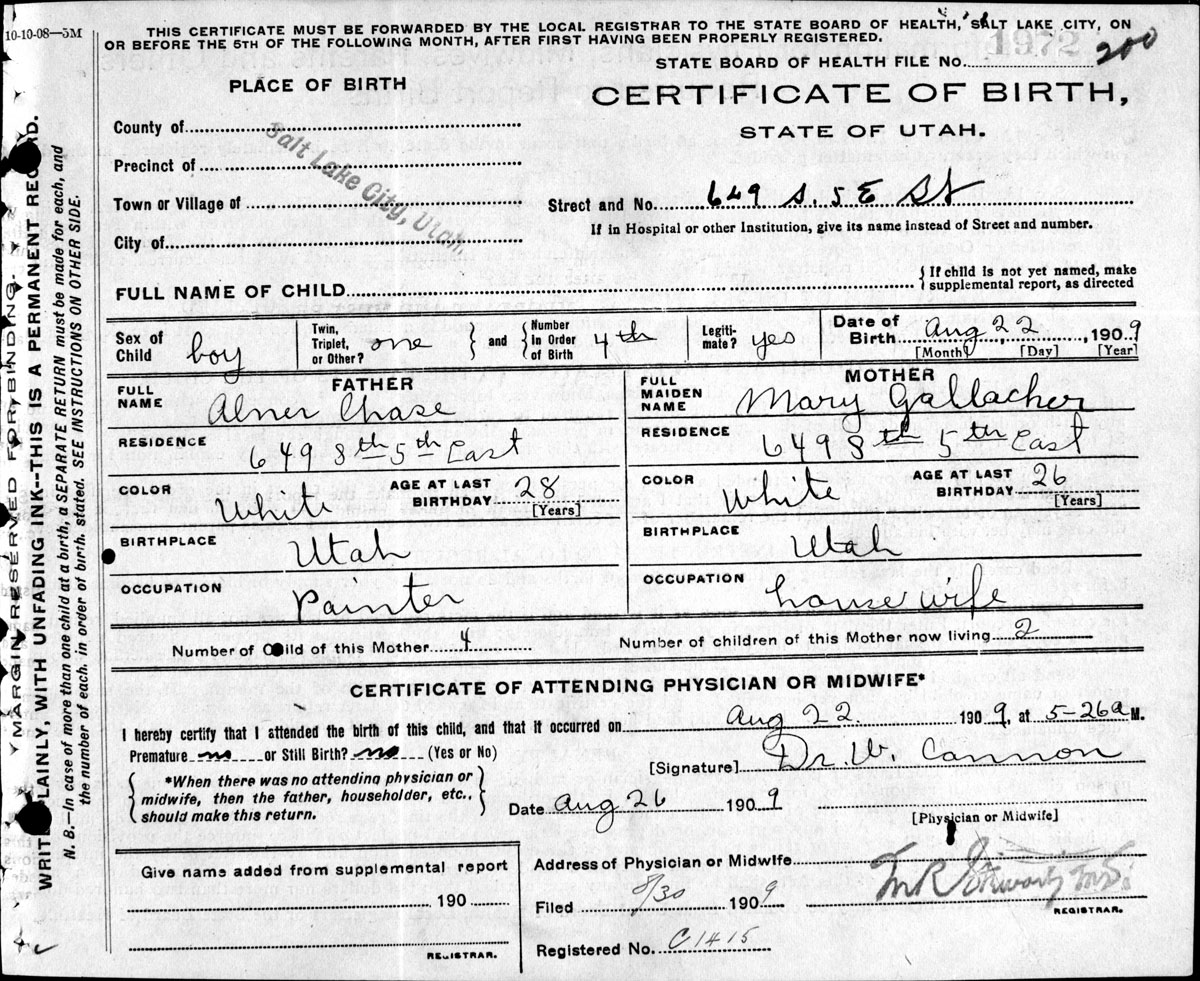 10-10-08—5M
THIS CERTIFICATE MUST BE FORWARDED BY THE LOCAL REGISTRAR TO THE STATE BOARD OF HEALTH, SALT LAKE CITY, ON
OR BEFORE THE 5TH OF THE FOLLOWING MONTH, AFTER FIRST HAVING BEEN PROPERLY REGISTERED.
1972
200
STATE BOARD OF HEALTH FILE No.
PLACE OF BIRTH
CERTIFICATE OF BIRTH,
STATE OF UTAH.
County of
Precinct of
Town or Village of
City of
Salt Lake City, Utah.
Street and No. 649 S. 5 E St
If in Hospital or other Institution, give its name instead of Street and number.
FULL NAME OF CHILD
{ If child is not yet named, make
supplemental report, as directed
Sex of Child boy
Twin, Triplet, or Other? one } and { Number In Order of Birth 4th
Legitimate? yes
Date of Birth Aug 22, 1909
[Month] [Day] [Year]
FATHER
FULL NAME Abner Chase
RESIDENCE 649 8th 5th East
COLOR White
AGE AT LAST BIRTHDAY 28
[Years]
BIRTHPLACE Utah
OCCUPATION Painter
MOTHER
FULL MAIDEN NAME Mary Gallacher
RESIDENCE 649 8th 5th East
COLOR White
AGE AT LAST BIRTHDAY 26
[Years]
BIRTHPLACE Utah
OCCUPATION house wife
Number of Child of this Mother 4
Number of children of this Mother now living 2
CERTIFICATE OF ATTENDING PHYSICIAN OR MIDWIFE*
I hereby certify that I attended the birth of this child, and that it occurred on Aug 22 1909, at 5-26a M.
Premature no or Still Birth? no (Yes or No)
{ *When there was no attending physician or
midwife, then the father, householder, etc.,
should make this return. }
[Signature] Dr. W. Cannon
Date Aug 26 1909
[Physician or Midwife]
Give name added from supplemental report
190
REGISTRAR.
Address of Physician or Midwife
Filed 8/30 1909
REGISTRAR.
Registered No. C1415
MARGIN RESERVED FOR BINDING.
WRITE PLAINLY, WITH UNFADING INK--THIS IS A PERMANENT RECORD.
N. B.—In case of more than one child at a birth, a SEPARATE RETURN must be made for each, and
the number of each, in order of birth, stated. SEE INSTRUCTIONS ON OTHER SIDE.